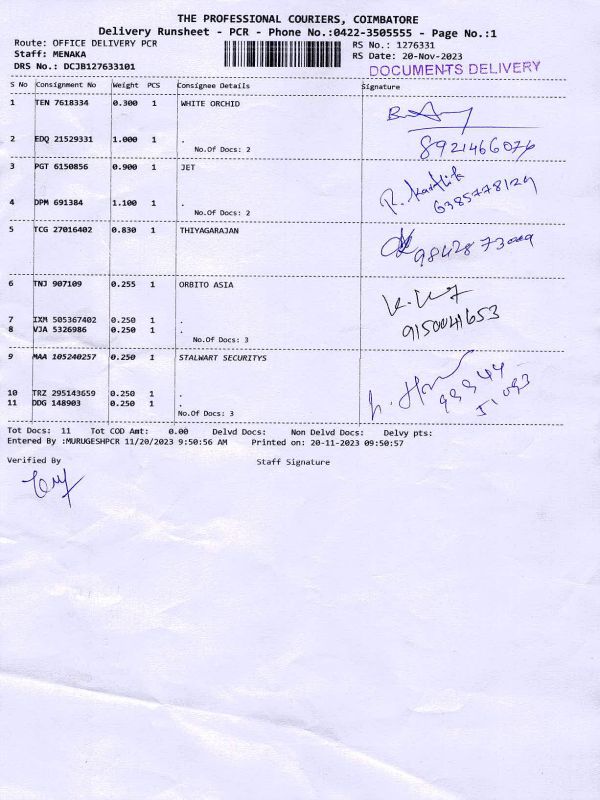 THE PROFESSIONAL COURIERS, COIMBATORE
Delivery Runsheet - PCR - Phone No.:0422-3505555 - Page No.:1
Route: OFFICE DELIVERY PCR RS No.: 1276331
Staff: MENAKA RS Date: 20-Nov-2023
DRS No.: DCJB127633101 DOCUMENTS DELIVERY
S No Consignment No Weight PCS Consignee Details Signature
1 TEN 7618334 0.300 1 WHITE ORCHID
2 EDQ 21529331 1.000 1 .
No.Of Docs: 2 8921466076
3 PGT 6150856 0.900 1 JET
R. Karthik
4 DPM 691384 1.100 1 . 6385778129
No.Of Docs: 2
5 TCG 27016402 0.830 1 THIYAGARAJAN
6 TNJ 907109 0.255 1 ORBITO ASIA
7 IXM 505367402 0.250 1 .
8 VJA 5326986 0.250 1 . 9150041653
No.Of Docs: 3
9 MAA 105240257 0.250 1 STALWART SECURITYS
10 TRZ 295143659 0.250 1 .
11 DDG 148903 0.250 1 .
No.Of Docs: 3
Tot Docs: 11 Tot COD Amt: 0.00 Delvd Docs: Non Delvd Docs: Delvy pts:
Entered By :MURUGESHPCR 11/20/2023 9:50:56 AM Printed on: 20-11-2023 09:50:57
Verified By Staff Signature